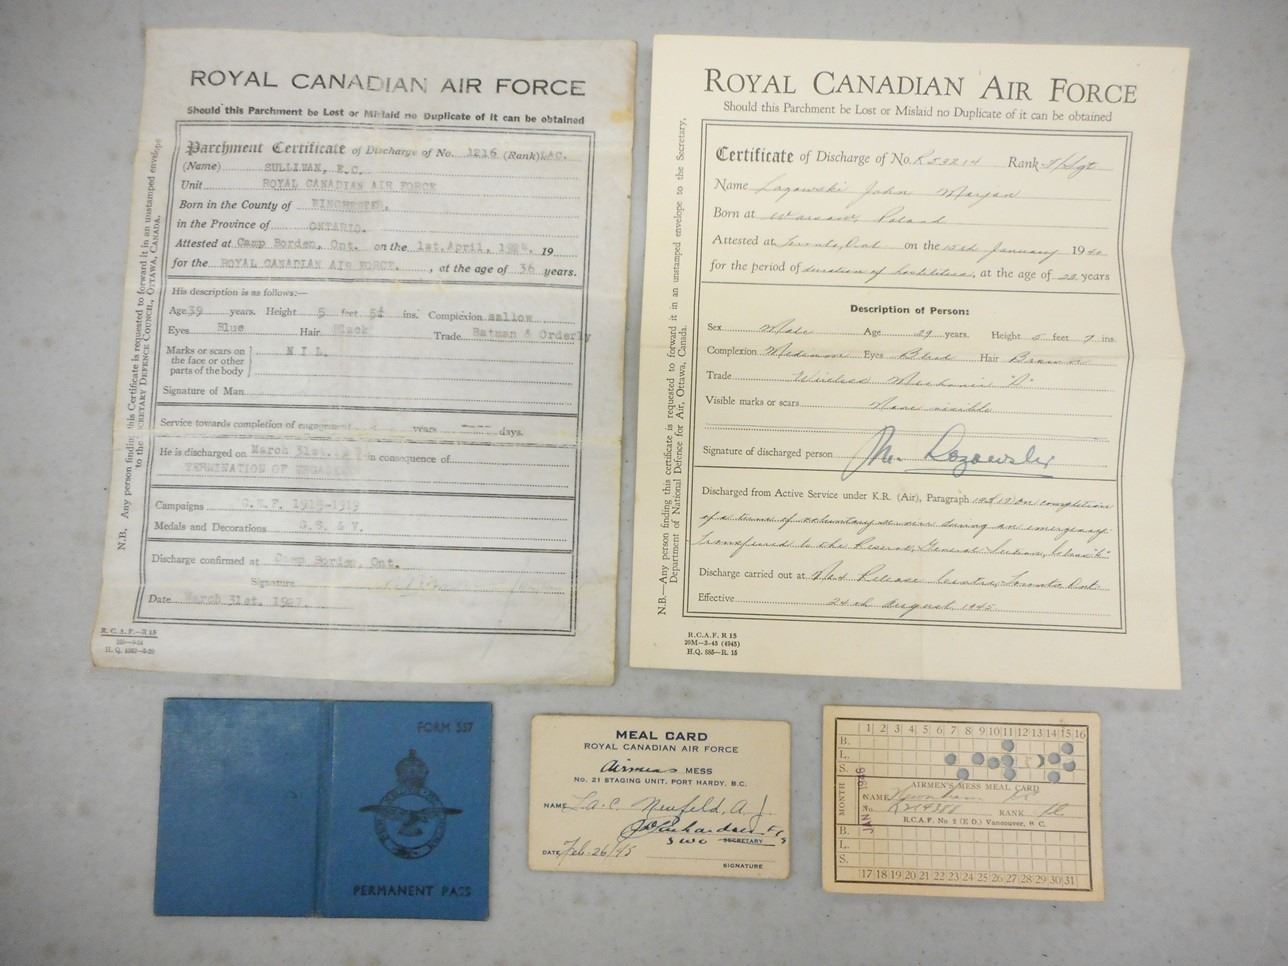 ROYAL CANADIAN AIR FORCE
Should this Parchment be Lost or Mislaid no Duplicate of it can be obtained
Parchment Certificate of Discharge of No. 1216 (Rank) LAC.
(Name) SULLIVAN, E.C.
Unit ROYAL CANADIAN AIR FORCE
Born in the County of
in the Province of ONTARIO.
Attested at Camp Borden, Ont. on the 1st. April, 19
for the ROYAL CANADIAN AIR FORCE. , at the age of 36 years.
His description is as follows:—
Age 39 years. Height 5 feet 5¼ ins. Complexion sallow
Eyes Blue Hair Black Trade Batman & Orderly
Marks or scars on
the face or other
parts of the body
N I L.
Signature of Man
Service towards completion of engagement years days.
He is discharged on March 31st. in consequence of
TERMINATION OF
Campaigns G.W.F. 1915-1919
Medals and Decorations G.S. & V.
Discharge confirmed at Camp Borden, Ont.
Signature
Date March 31st. 1927.
R.C.A.F.—R 15
N.B. Any person finding this Certificate is requested to forward it in an unstamped envelope
to the SECRETARY DEFENCE COUNCIL, OTTAWA, CANADA.
ROYAL CANADIAN AIR FORCE
Should this Parchment be Lost or Mislaid no Duplicate of it can be obtained
Certificate of Discharge of No. R53214 Rank T/Sgt
Name John Marjan
Born at Warsaw, Poland
Attested at Toronto, Ont on the 15th January 1940
for the period of duration of hostilities, at the age of years
Description of Person:
Sex Male Age 29 years. Height 5 feet 7 ins.
Complexion Medium Eyes Blue Hair Brown
Trade Wireless Mechanic "A"
Visible marks or scars None visible
Signature of discharged person
Discharged from Active Service under K.R. (Air), Paragraph on completion
of a term of voluntary service during an emergency.
Transferred to the Reserve, General Section, Class "E"
Discharge carried out at Release Centre, Toronto, Ont.
Effective 24th August, 1945.
R.C.A.F. R 15
20M—3-45 (4945)
H.Q. 885—R. 15
N.B.—Any person finding this certificate is requested to forward it in an unstamped envelope to the Secretary,
Department of National Defence for Air, Ottawa, Canada.
FORM 557
PERMANENT PASS
MEAL CARD
ROYAL CANADIAN AIR FORCE
Airmens MESS
No. 21 STAGING UNIT, PORT HARDY, B.C.
NAME LAC Neufeld, A. J.
SWO SECRETARY
DATE Feb-26/45
SIGNATURE
1 2 3 4 5 6 7 8 9 10 11 12 13 14 15 16
B.
L.
S.
AIRMEN'S MESS MEAL CARD
MONTH JAN 1946
NAME
No. R214388 RANK
R.C.A.F. No 2 (E.D.) Vancouver, B.C.
B.
L.
S.
17 18 19 20 21 22 23 24 25 26 27 28 29 30 31